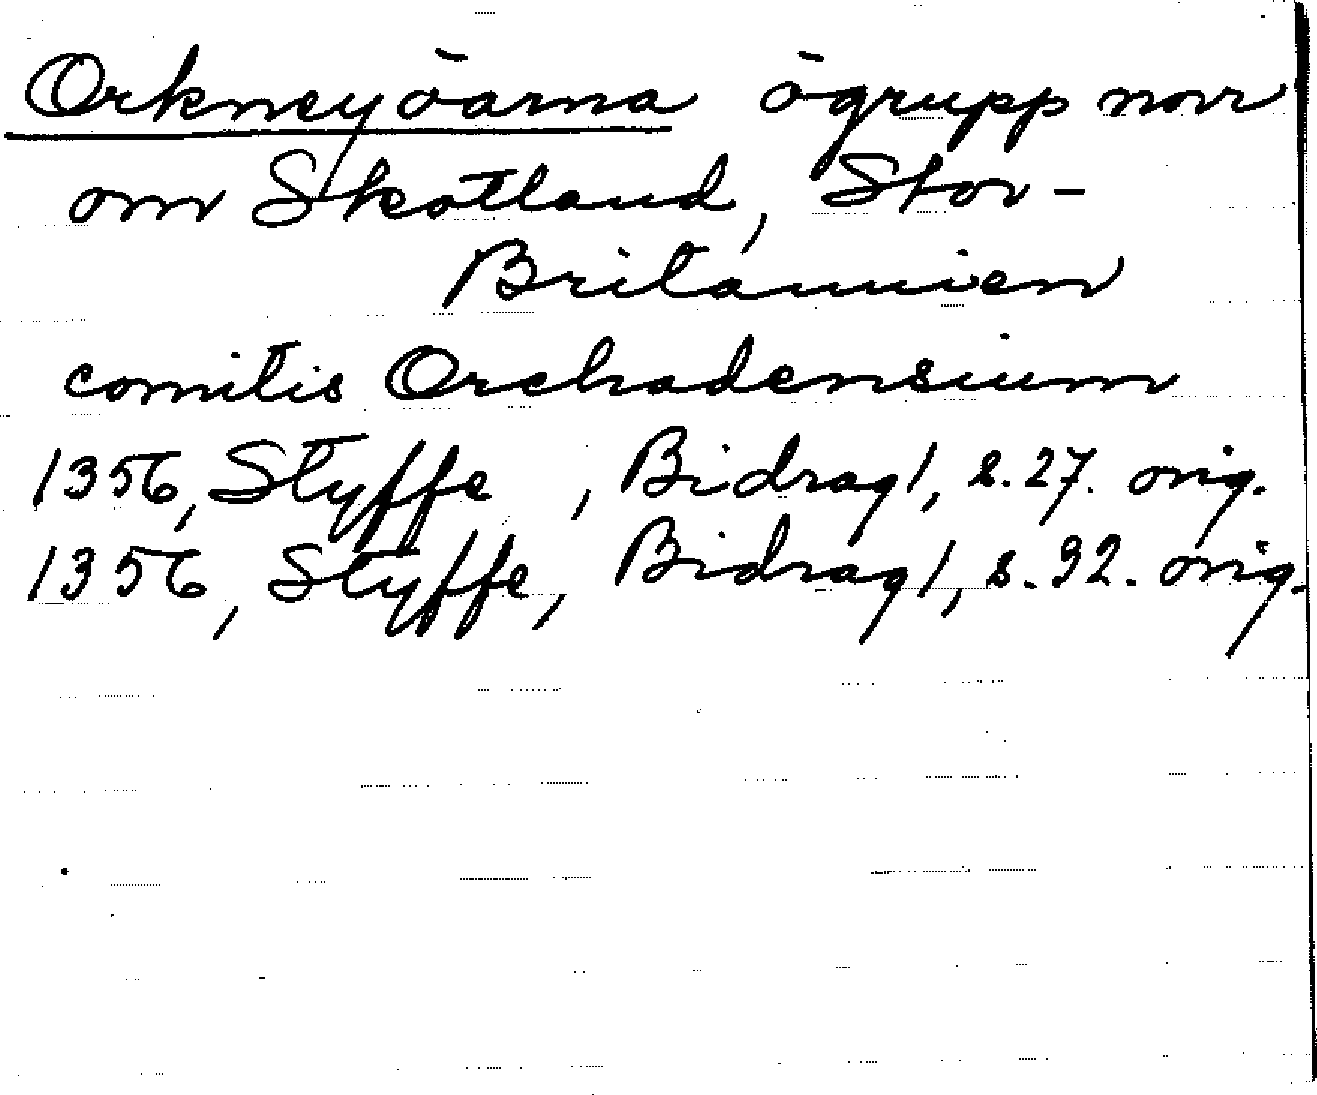 Orkneyöarna ögrupp norr
om Skotland, Stor-
Britannien
comitis Orchadensium
1356, Styffe, Bidrag 1, s. 27. orig.
1356, Styffe, Bidrag 1, s. 92. orig.